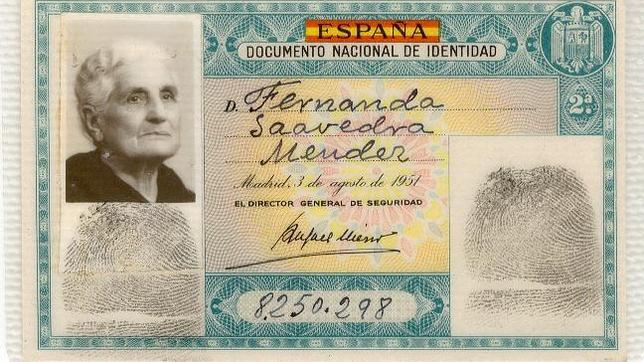 ESPAÑA
DOCUMENTO NACIONAL DE IDENTIDAD
2ª
D. Fernanda
Saavedra
Mendez
Madrid, 3 de agosto de 1951
EL DIRECTOR GENERAL DE SEGURIDAD
8.250.298